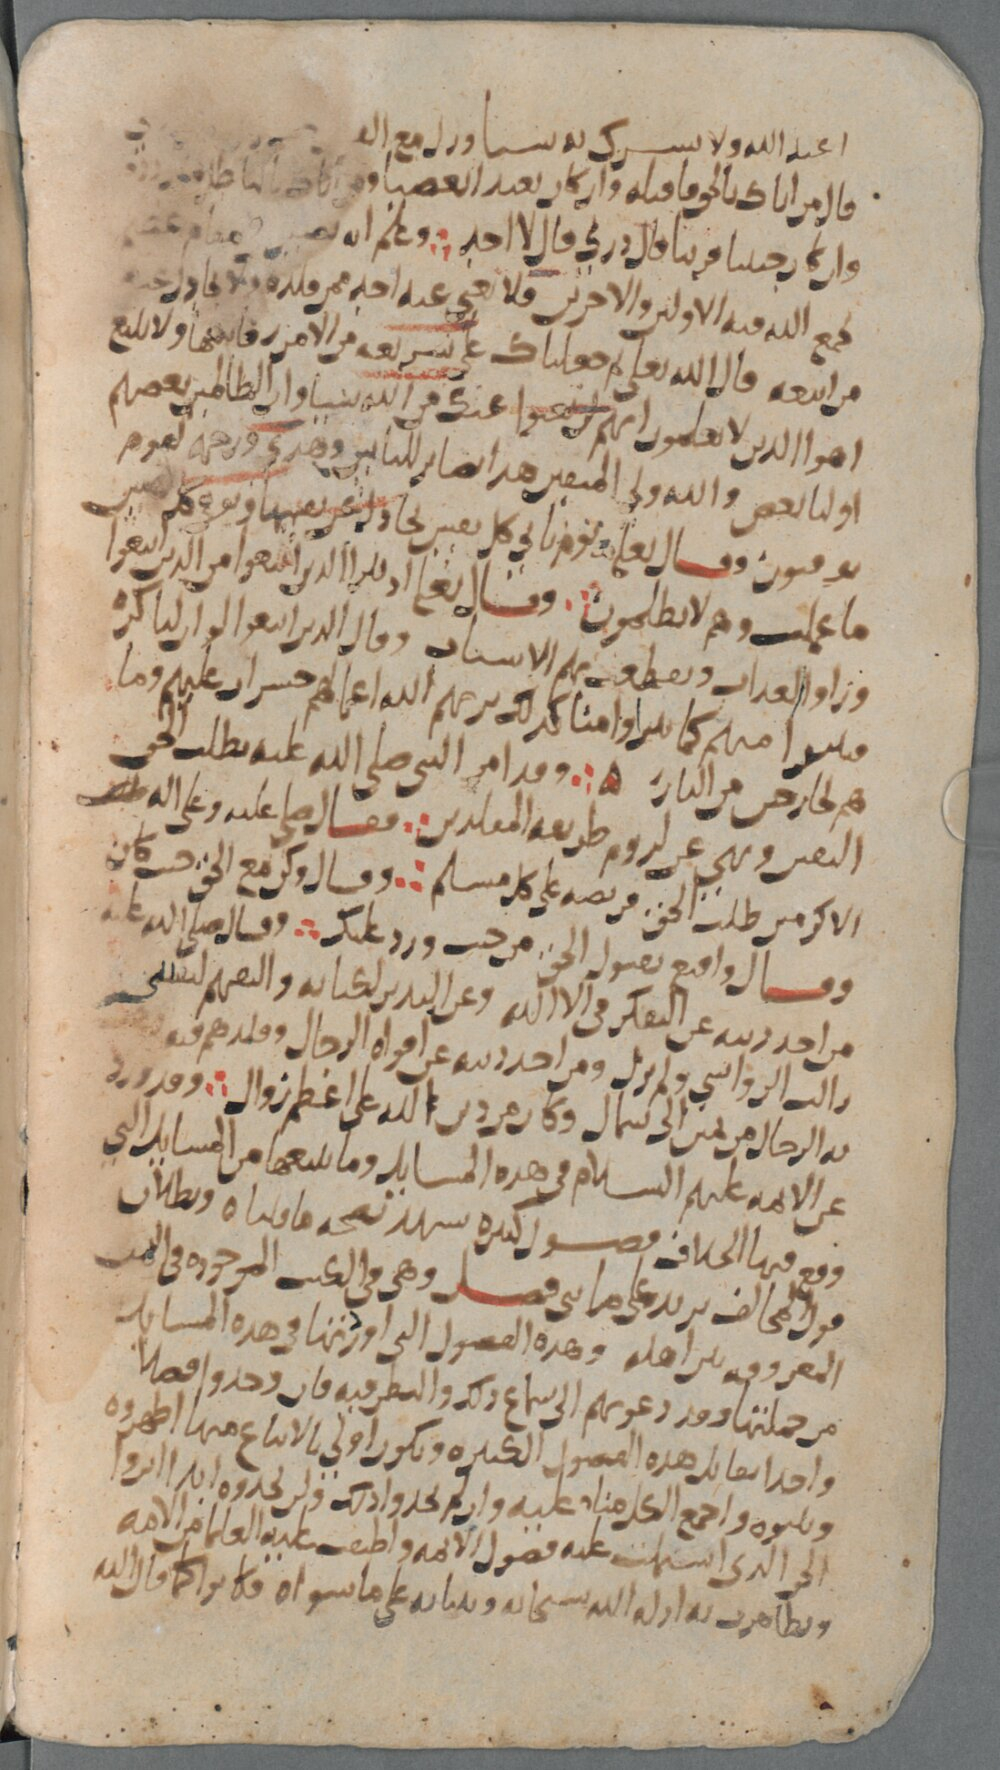 اعبد الله ولا تشرك به شيا وزل مع
قال من اتاك بالحق فاقبله وان كان بعيدا بغيضا ومن اتاك بالباطل
وان كان حبيبا قريبا قال زدني قال لا اجد ∴ وعلم انه
يجمع الله فيه الاولين والاخرين فلا يغني عنه احد ممن قلده ولا يجادل
من اتبعه قال الله تعالى ثم جعلناك على شريعه من الامر فاتبعها ولا تتبع
اهوا الذين لا يعلمون انهم لن يغنوا عنك من الله شيا وان الظالمين بعضهم
اوليا بعض والله ولي المتقين هذا بصاير للناس وهدى ورحمه لقوم
يوقنون وقال تعالى يوم تاتي كل نفس تجادل عن نفسها وتوفى كل نفس
ما عملت وهم لا يظلمون ∴ وقال تعالى اذ تبرا الذين اتبعوا من الذين اتبعوا
وراوا العذاب وتقطعت بهم الاسباب وقال الذين اتبعوا لو ان لنا كره
فنتبرا منهم كما تبراوا منا كذلك يريهم الله اعمالهم حسرات عليهم وما
هم بخارجين من النار ∴ وقد امر النبي صلى الله عليه بطلب الحق
اليقين ونهى عن لزوم طريقه المقلدين ∴ فقال صلى عليه وعلى اله
الاكرمين طلب الحق فريضه على كل مسلم ∴ وقال وكن مع الحق حيث كان
وقال واقنع بقبول الحق من حيث ورد عليك ∴ وقال صلى الله عليه
من اخذ دينه عن التفكر في الا الله وعن التدبر لكتابه والتفهم لسنتي
زالت الرواسي ولم يزل ومن اخذ دينه عن افواه الرجال وقلدهم فيه
به الرجال من يمين الى شمال وكان من دين الله على اعظم زوال ∴ وقد ورد
عن الايمه عليهم السلام في هذه المسايل وما يتبعها من المسايل التي
وقع فيها الخلاف فصول كثيره تشهد بصحه ما قلناه وبطلان
قول المخالف يزيد على مايتي فصل وهي في الكتب الموجوده في اليمن
المعروفه بين اهله وهذه الفصول التي اوردتها في هذه المسايل
من جملتها وقد دعوتهم الى سماع ذلك والنظر فيه فان وجدوا فصلا
واحدا يقابل هذه الفصول الكثيره ويكون اولى بالاتباع منها اظهروه
وبينوه واجمع الكل منا عليه وان لم يجدوا ذلك ولن يجدوه ابدا انزوا
الى الذي اشتملت عليه فصول الايمه واطبقت عليه العلما من الامه
وتظاهرت به ادله الله سبحانه وبيناته على ما سواه فكانوا كما قال الله